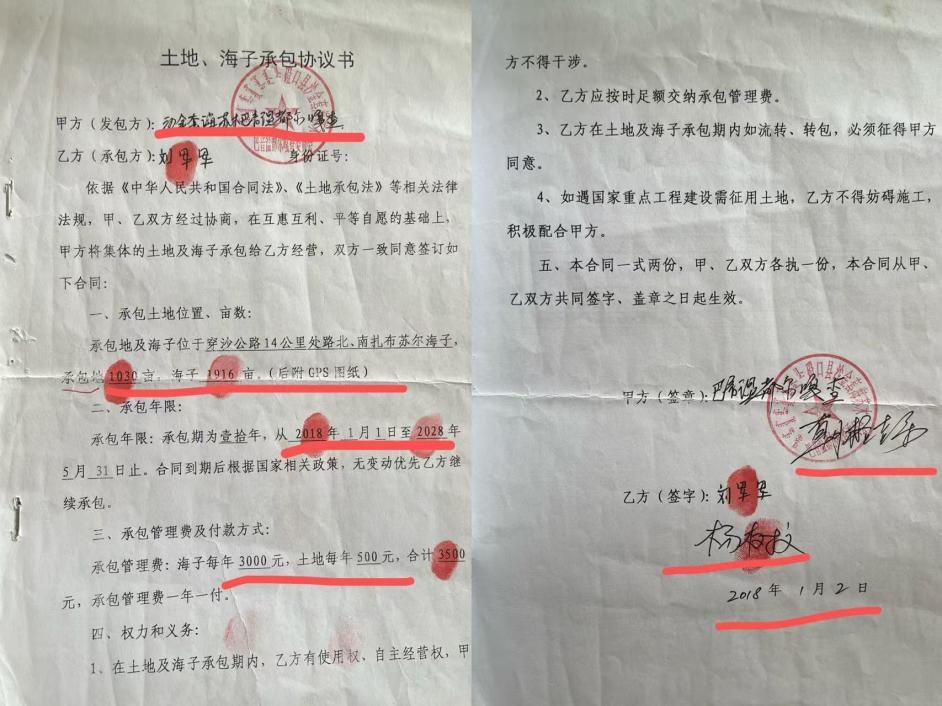 土地、海子承包协议书
甲方（发包方）：
乙方（承包方）：刘军军 身份证号：
依据《中华人民共和国合同法》、《土地承包法》等相关法律
法规，甲、乙双方经过协商，在互惠互利、平等自愿的基础上，
甲方将集体的土地及海子承包给乙方经营，双方一致同意签订如
下合同：
一、承包土地位置、亩数：
承包地及海子位于穿沙公路14公里处路北、南扎布苏尔海子，
承包地1030亩，海子1916亩。（后附GPS图纸）
二、承包年限：
承包年限：承包期为壹拾年，从2018年1月1日至2028年
5月31日止。合同到期后根据国家相关政策，无变动优先乙方继
续承包。
三、承包管理费及付款方式：
承包管理费：海子每年3000元，土地每年500元，合计3500
元，承包管理费一年一付。
四、权力和义务：
1、在土地及海子承包期内，乙方有使用权、自主经营权，甲
方不得干涉。
2、乙方应按时足额交纳承包管理费。
3、乙方在土地及海子承包期内如流转、转包，必须征得甲方
同意。
4、如遇国家重点工程建设需征用土地，乙方不得妨碍施工，
积极配合甲方。
五、本合同一式两份，甲、乙双方各执一份，本合同从甲、
乙双方共同签字、盖章之日起生效。
甲方（签章）：
乙方（签字）：刘军军
2018年1月2日